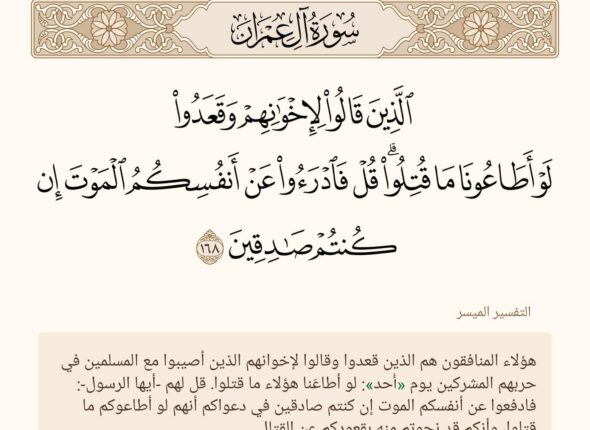 سُورَةُ آلِ عِمْرَانَ
ٱلَّذِينَ قَالُوا۟ لِإِخْوَٰنِهِمْ وَقَعَدُوا۟
لَوْ أَطَاعُونَا مَا قُتِلُوا۟ ۗ قُلْ فَٱدْرَءُوا۟ عَنْ أَنفُسِكُمُ ٱلْمَوْتَ إِن
كُنتُمْ صَـٰدِقِينَ ١٦٨
التفسير الميسر
هؤلاء المنافقون هم الذين قعدوا وقالوا لإخوانهم الذين أصيبوا مع المسلمين في
حربهم المشركين يوم «أحد»: لو أطاعَنا هؤلاء ما قتلوا. قل لهم -أيها الرسول-:
فادفعوا عن أنفسكم الموت إن كنتم صادقين في دعواكم أنهم لو أطاعوكم ما
قتلوا، وأنكم قد نجوتم منه بقعودكم عن القتال.